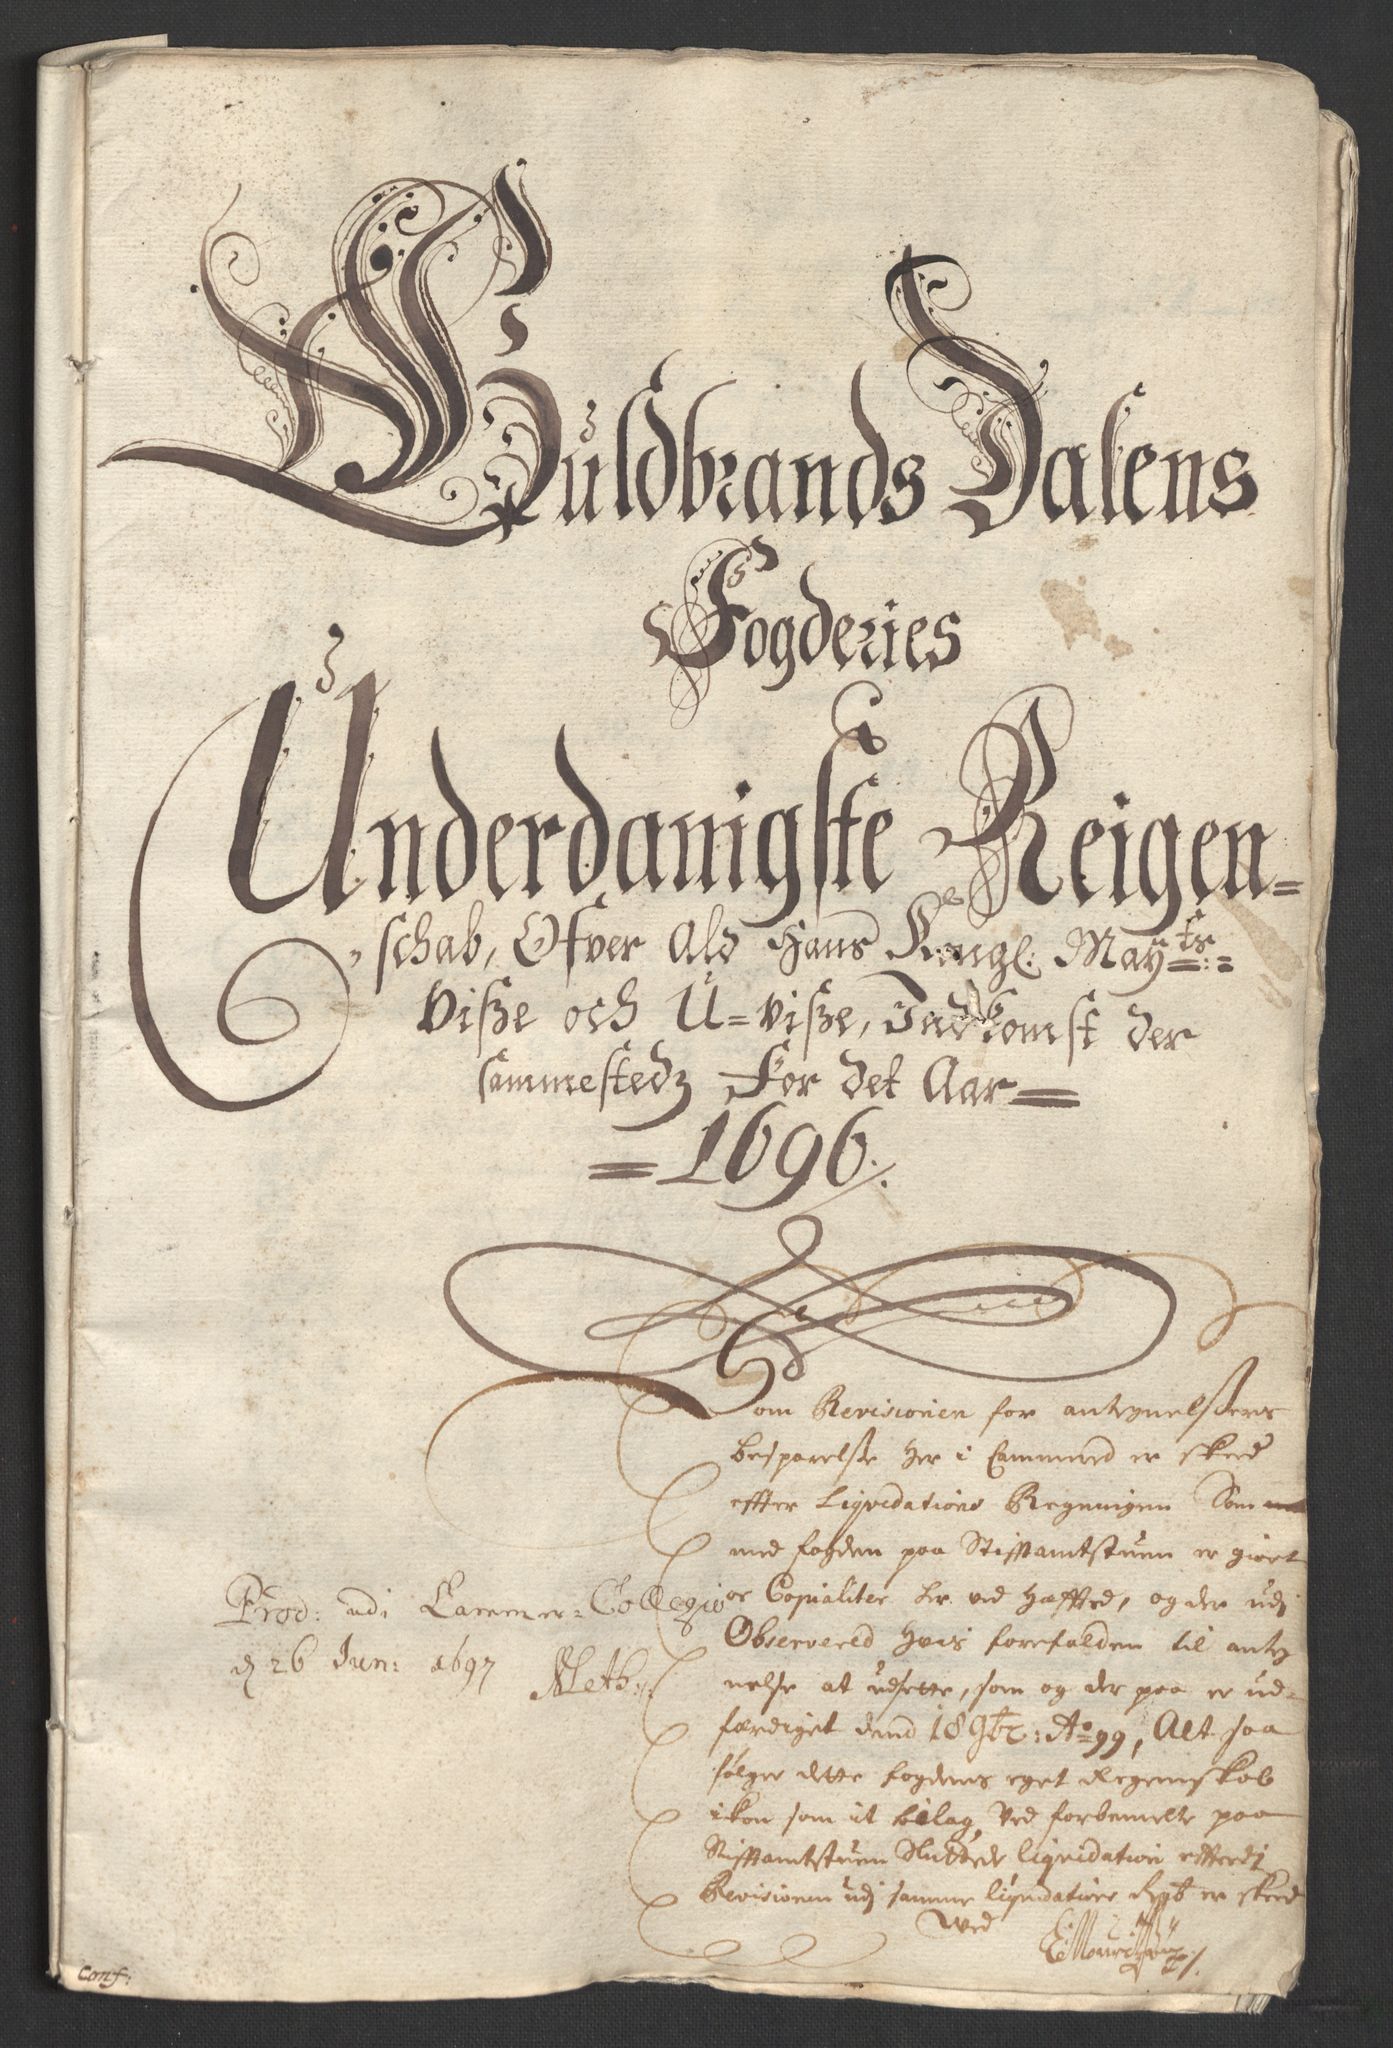 Guldbrands Dalens
Fogderies
Underdanigste Reigen=
schab, Ofver Ald Hans Kongl: Mayts:
Visze och U=visze, Indkomst der
sammestedz For det Aar
1696.
Som Revisionen for antegnelszers
besparelse her i Cammered er skeed
effter Liqvidations Regningen Som
med fogden paa Stifftamtstuen er giort
oc Copialiter her ved hæffted, og der udj
Observered hvis forefalden til anteg
nelse at udsette, som og der paa er ud=
færdiget dend 18 9br: Ao 99, Alt saa
følger dette fogdens eget Regenskab
ikon som it bilag, Ved forbemelte paa
Stifftamtstuen Sluttede liqvidation effterdj
Revisionen udj samme liqvidations Regb er skeed
Ved
Prod: udi Cammer=Collegio
d 26 Jun: 1697
Conf: